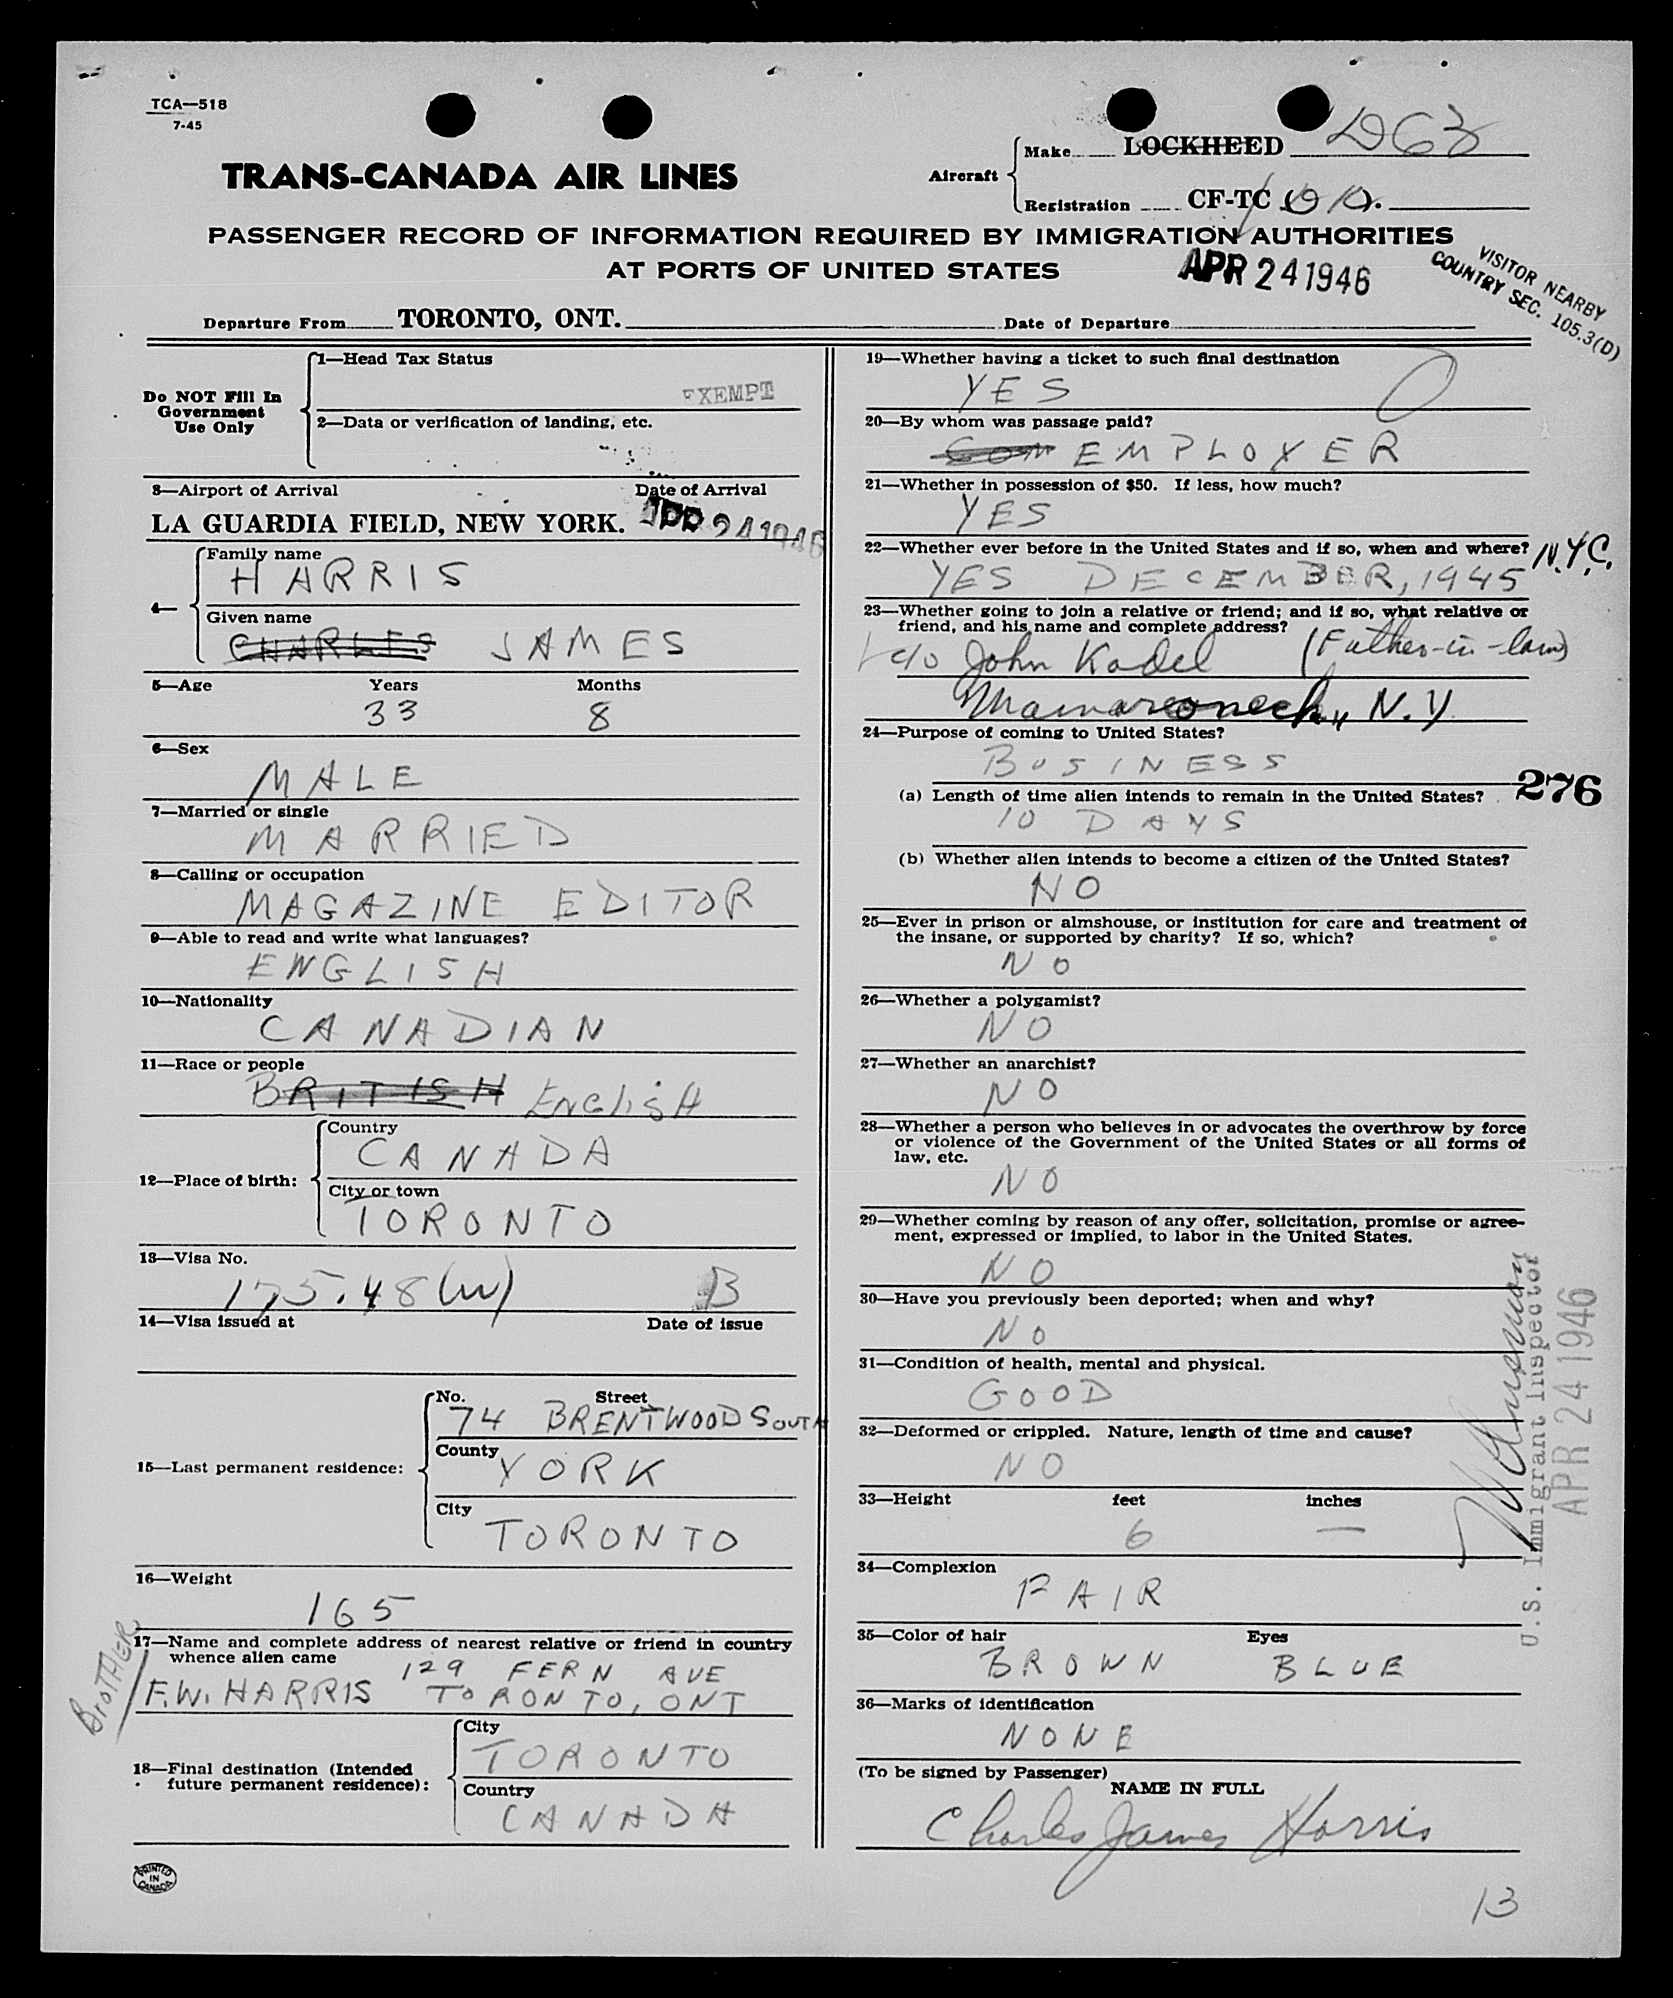 TCA—518
7-45
TRANS-CANADA AIR LINES
Aircraft
Make LOCKHEED
Registration CF-TC
PASSENGER RECORD OF INFORMATION REQUIRED BY IMMIGRATION AUTHORITIES
AT PORTS OF UNITED STATES
APR 24 1946
VISITOR NEARBY
COUNTRY SEC. 105.3(D)
Departure From TORONTO, ONT.
Date of Departure
Do NOT Fill In
Government
Use Only
1—Head Tax Status
EXEMPT
2—Data or verification of landing, etc.
3—Airport of Arrival Date of Arrival
LA GUARDIA FIELD, NEW YORK. APR 24 1946
4—
Family name
HARRIS
Given name
CHARLES JAMES
5—Age Years Months
33 8
6—Sex
MALE
7—Married or single
MARRIED
8—Calling or occupation
MAGAZINE EDITOR
9—Able to read and write what languages?
ENGLISH
10—Nationality
CANADIAN
11—Race or people
BRITISH ENGLISH
12—Place of birth:
Country
CANADA
City or town
TORONTO
13—Visa No.
175.48(w) B
14—Visa issued at Date of issue
15—Last permanent residence:
No. Street
74 BRENTWOOD SOUTH
County
YORK
City
TORONTO
16—Weight
165
BROTHER
17—Name and complete address of nearest relative or friend in country
whence alien came
129 FERN AVE
F.W. HARRIS TORONTO, ONT
18—Final destination (Intended
future permanent residence):
City
TORONTO
Country
CANADA
PRINTED
IN
CANADA
19—Whether having a ticket to such final destination
YES
20—By whom was passage paid?
COM EMPLOYER
21—Whether in possession of $50. If less, how much?
YES
22—Whether ever before in the United States and if so, when and where? N.Y.C.
YES DECEMBER, 1945
23—Whether going to join a relative or friend; and if so, what relative or
friend, and his name and complete address?
c/o John Kadel (Father-in-law)
Mamaroneck, N.Y.
24—Purpose of coming to United States?
BUSINESS
276
(a) Length of time alien intends to remain in the United States?
10 DAYS
(b) Whether alien intends to become a citizen of the United States?
NO
25—Ever in prison or almshouse, or institution for care and treatment of
the insane, or supported by charity? If so, which?
NO
26—Whether a polygamist?
NO
27—Whether an anarchist?
NO
28—Whether a person who believes in or advocates the overthrow by force
or violence of the Government of the United States or all forms of
law, etc.
NO
29—Whether coming by reason of any offer, solicitation, promise or agree-
ment, expressed or implied, to labor in the United States.
NO
30—Have you previously been deported; when and why?
NO
31—Condition of health, mental and physical.
GOOD
32—Deformed or crippled. Nature, length of time and cause?
NO
33—Height feet inches
6 —
34—Complexion
FAIR
35—Color of hair Eyes
BROWN BLUE
36—Marks of identification
NONE
(To be signed by Passenger)
NAME IN FULL
Charles James Harris
U.S. Immigrant Inspector
APR 24 1946
13